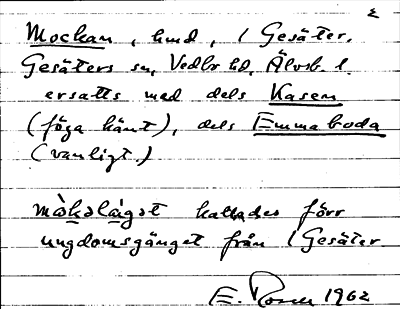 ξ
Mockan, hmd, 1 Gesäter,
Gesäters sn, Vedbo hd, Älvsb. l.
ersatts med dels Kasen
(föga känt), dels Emmaboda
(vanligt.)
måkslågst kallades förr
ungdomsgänget från 1 Gesäter
E. Rosen 1962